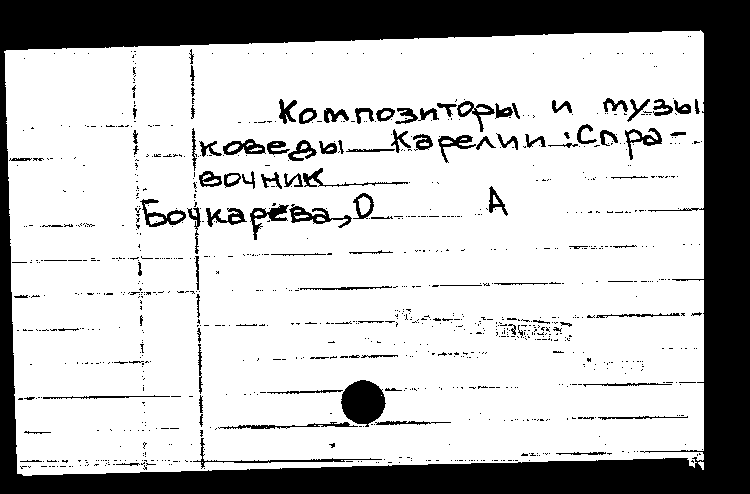 Композиторы и музы
коведы Карелии : Спра-
вочник
Бочкарева, О А